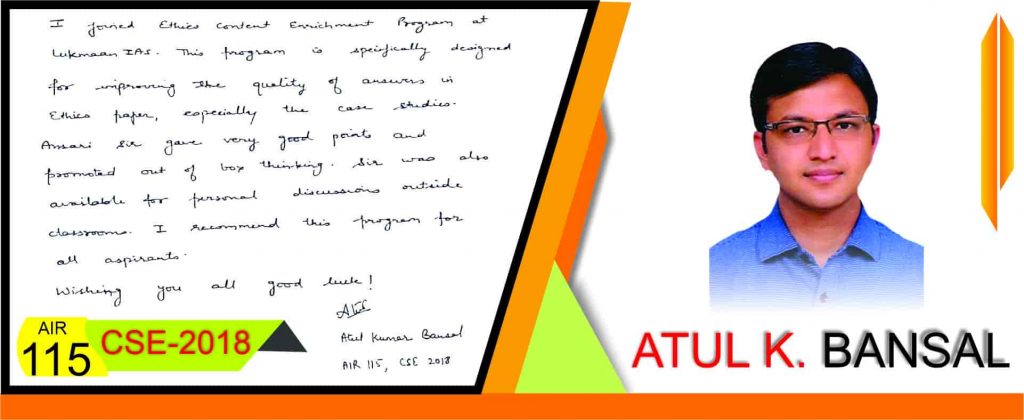 I joined Ethics Content Enrichment Program at
Lukmaan IAS. This program is specifically designed
for improving the quality of answers in
Ethics paper, especially the case studies.
Ansari Sir gave very good points and
promoted out of box thinking. Sir was also
available for personal discussions outside
classrooms. I recommend this program for
all aspirants.
Wishing you all good luck!
Atul
Atul Kumar Bansal
AIR 115, CSE 2018
AIR
115
CSE-2018
ATUL K. BANSAL